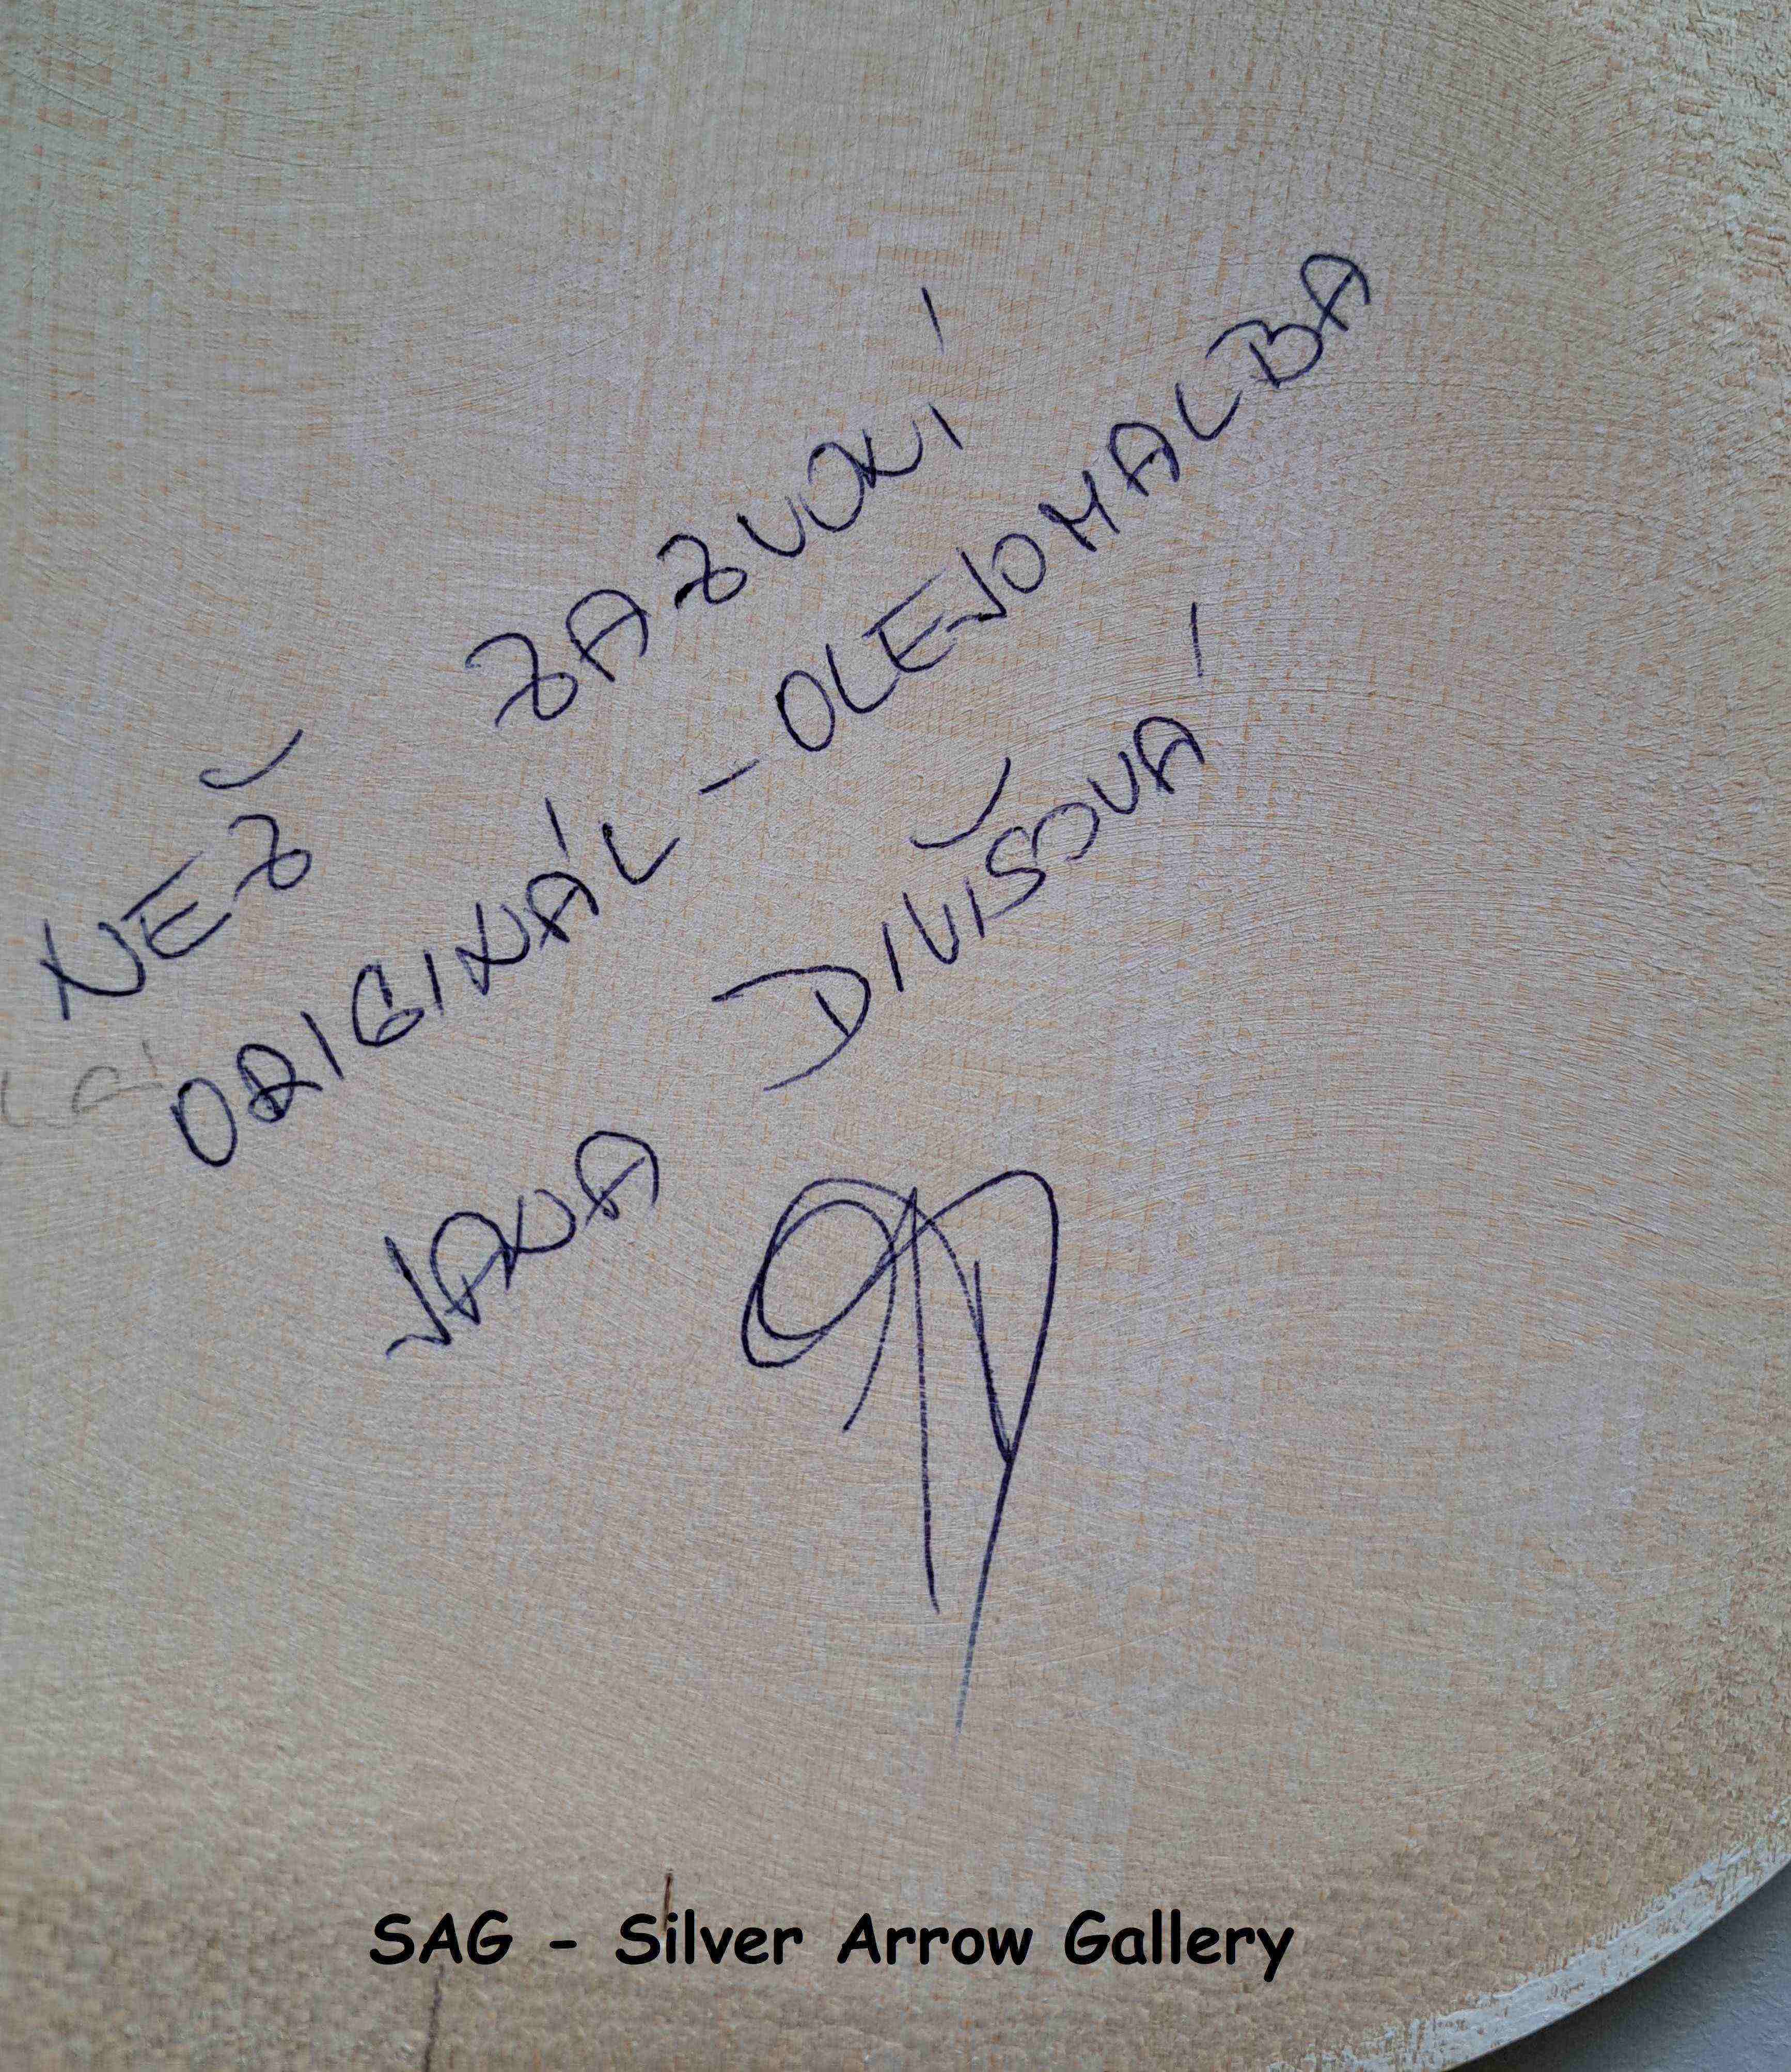 NEŽ ZAZVONÍ
ORIGINÁL - OLEJOMALBA
JANA DIVIŠOVÁ
SAG - Silver Arrow Gallery